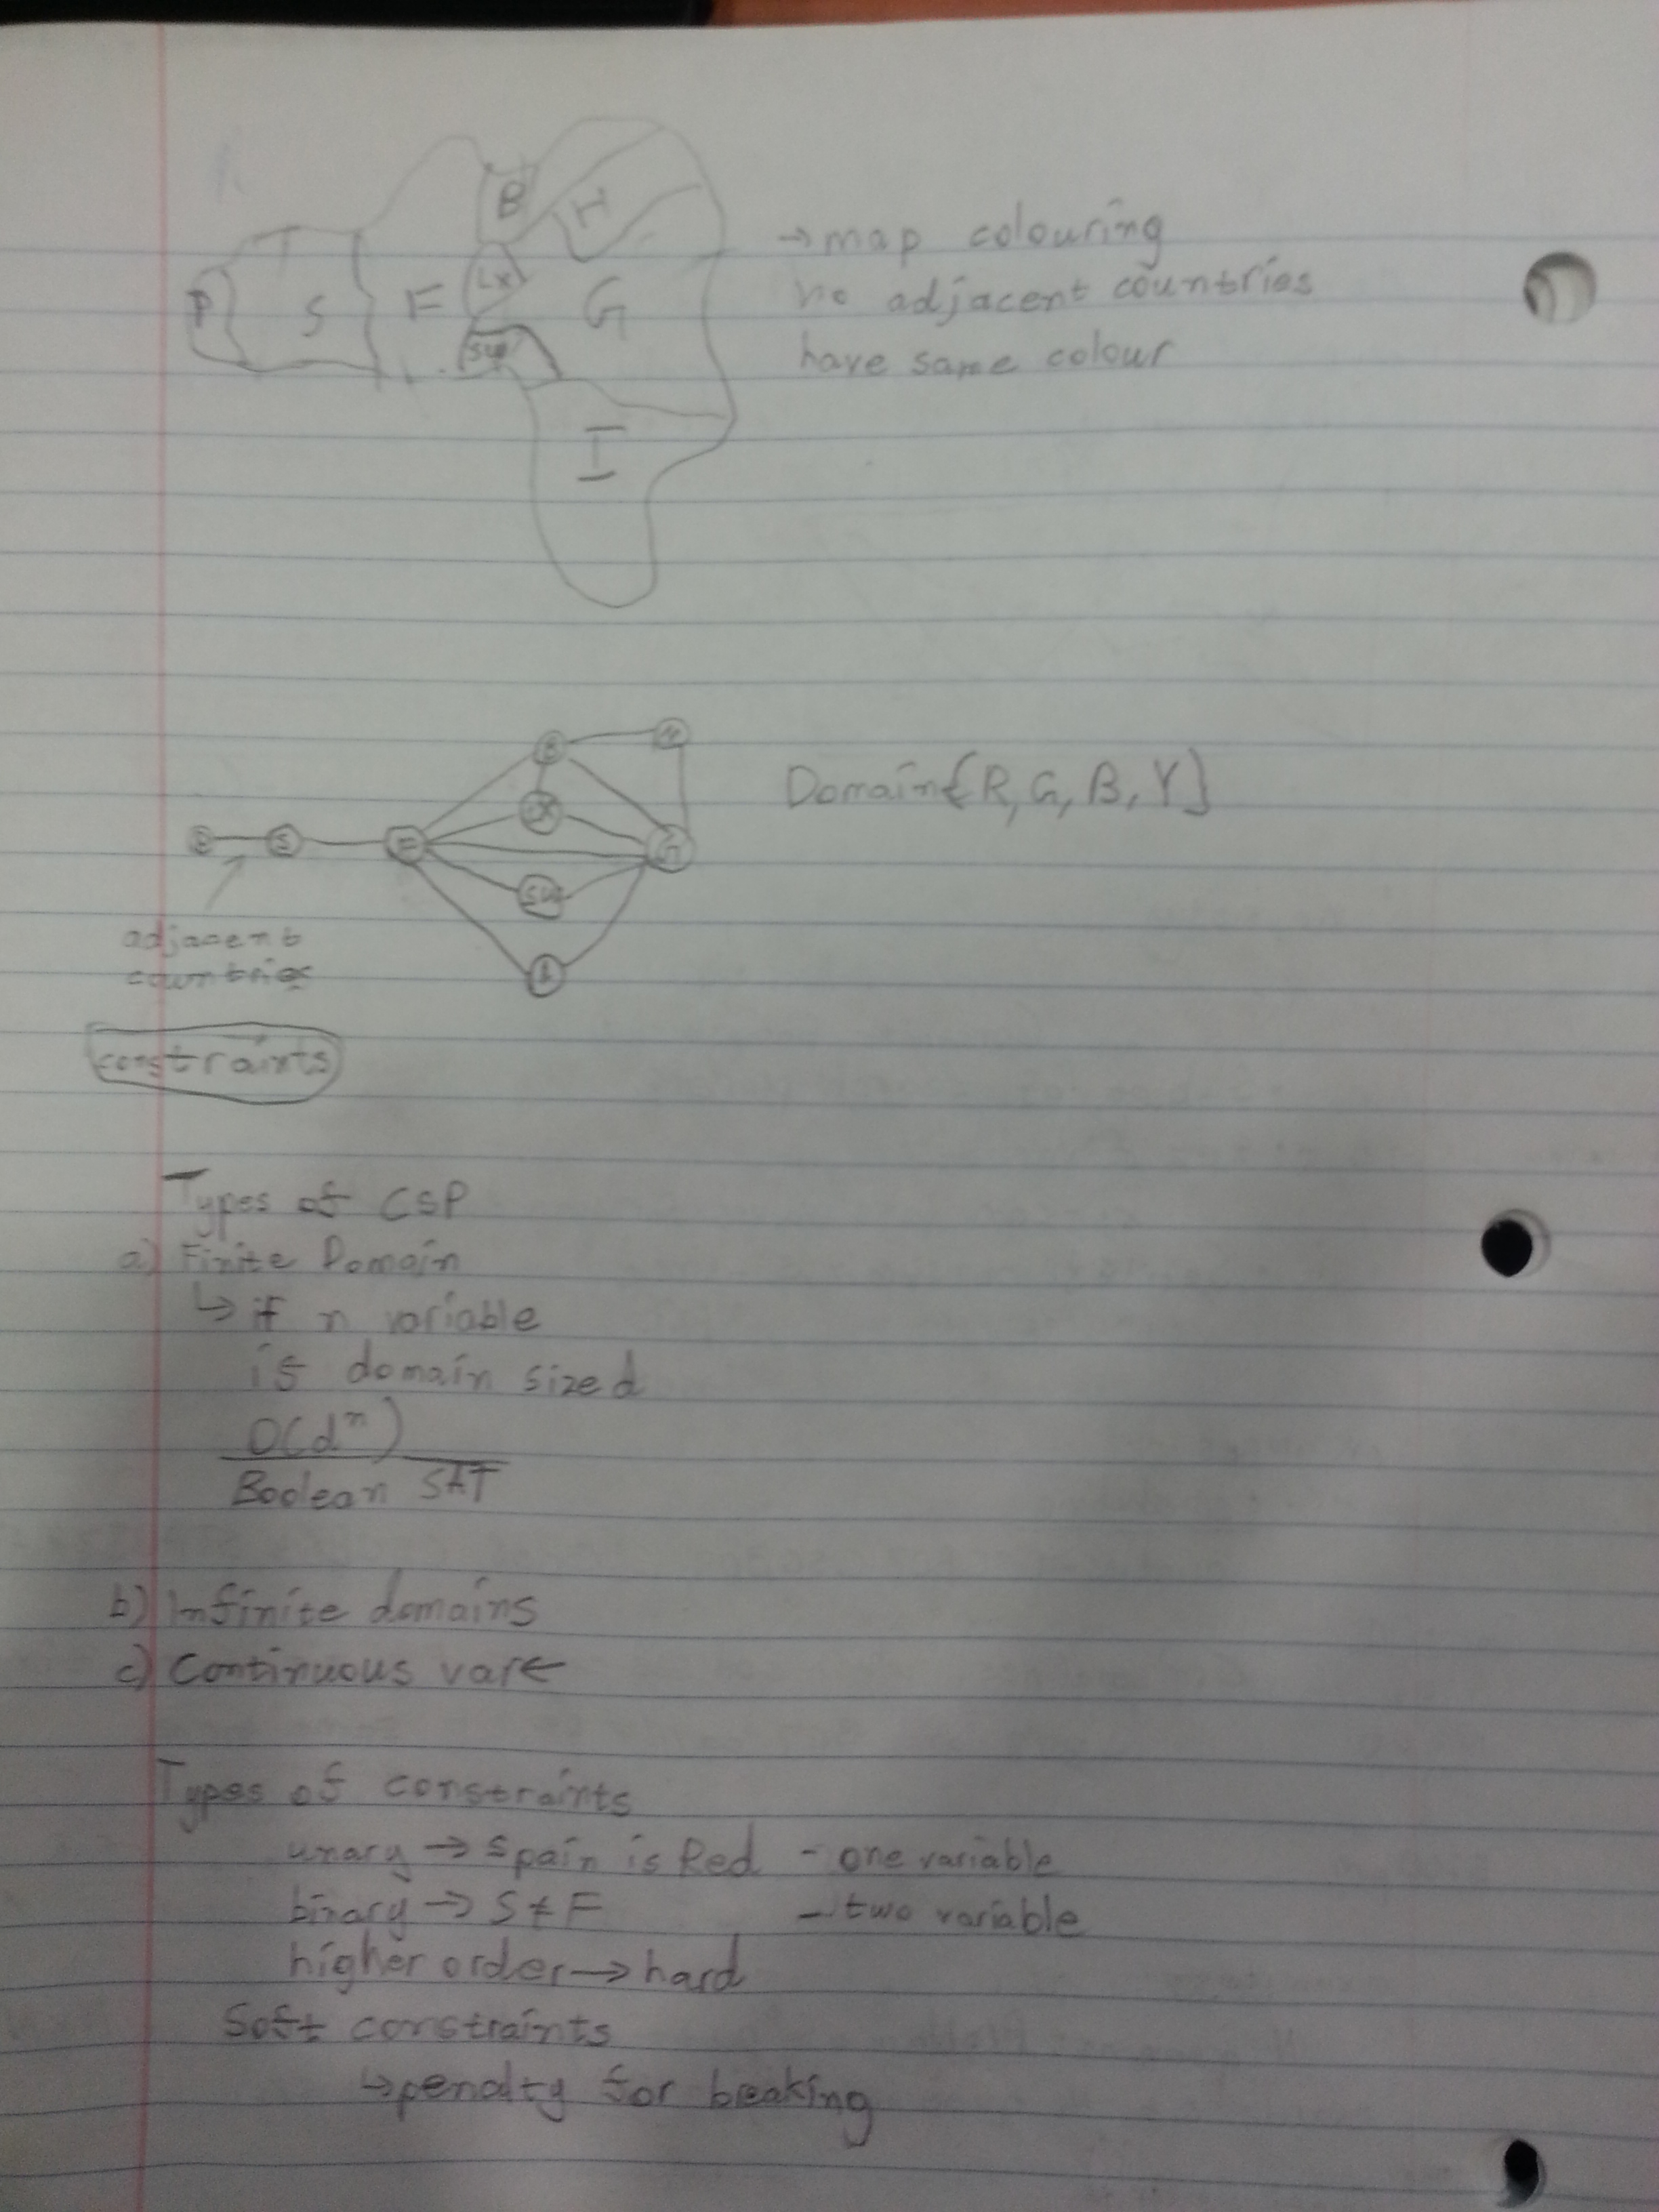 B
H
→ map colouring
P S F Lx G
no adjacent countries
sw
have same colour
I
B
Lx
Domain {R, G, B, Y}
P S F G
sw
I
adjacent
countries
constraints
Types of CSP
a) Finite Domain
↳ if n variable
is domain sized
O(dⁿ)
Boolean SAT
b) Infinite domains
c) Continuous var ←
Types of constraints
unary → Spain is Red - one variable
binary → S ≠ F - two variable
higher order → hard
Soft constraints
↳ penalty for breaking